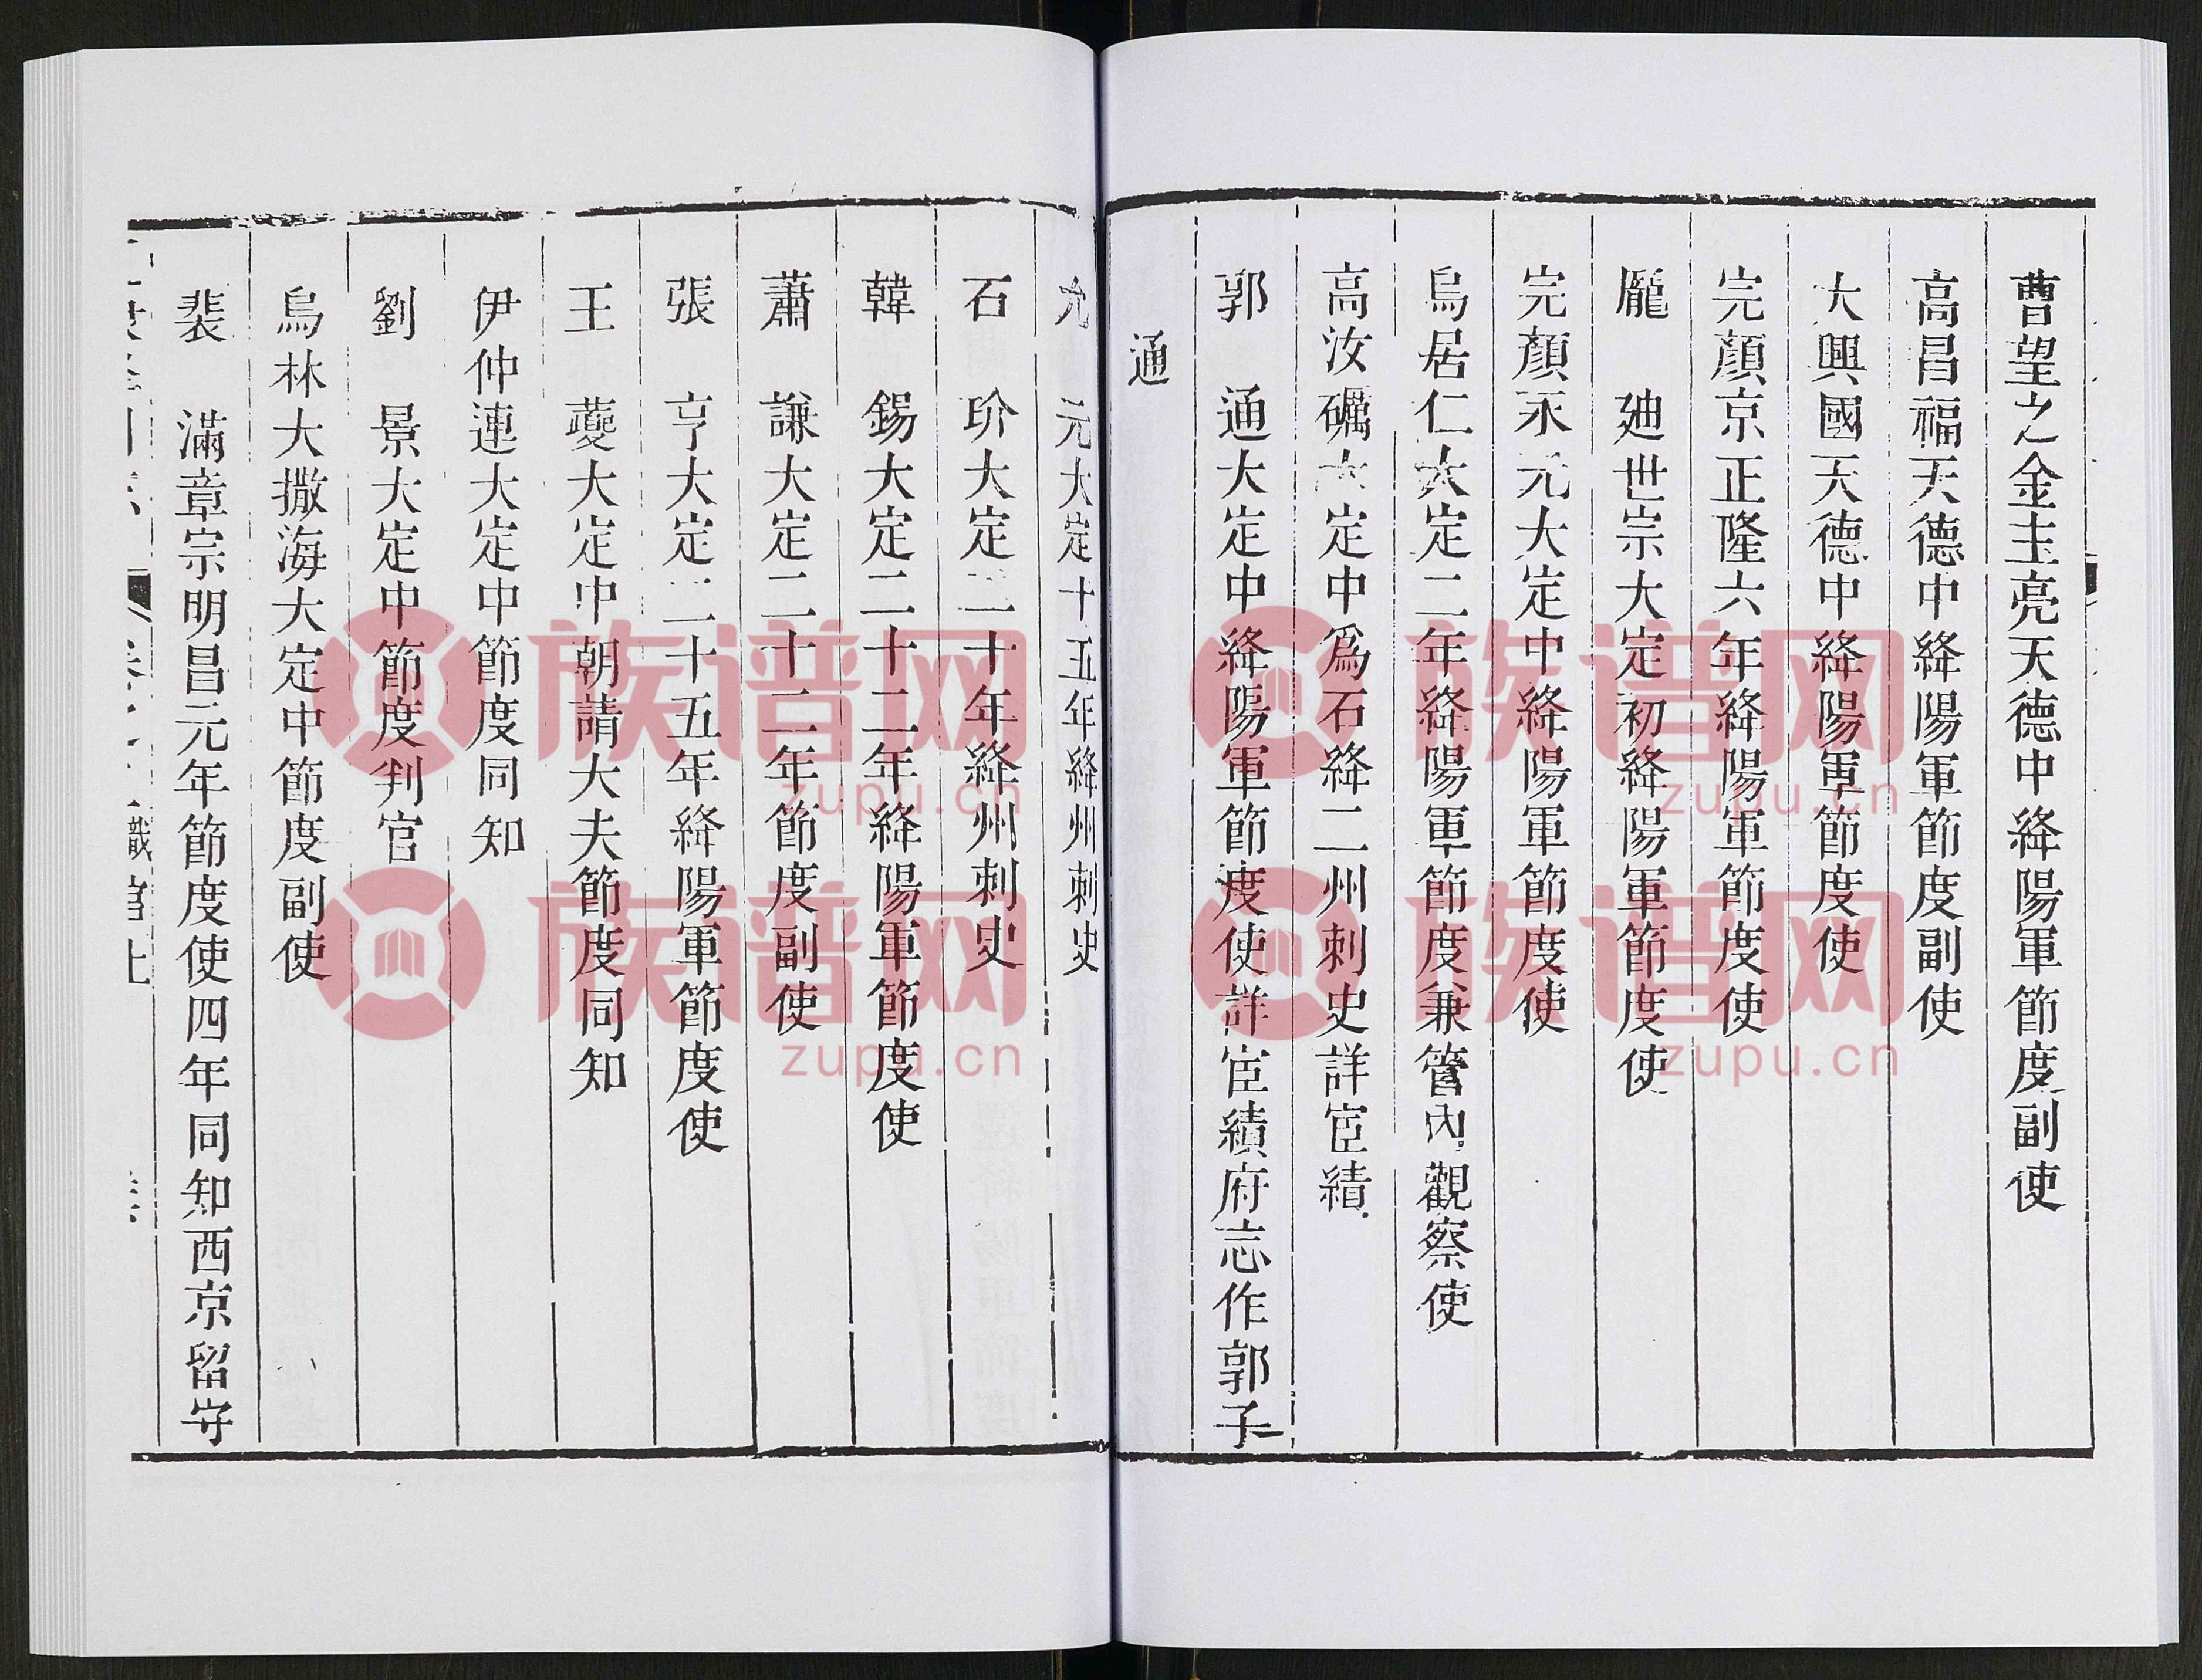 曹望之金主亮天德中絳陽軍節度副使
高昌福天德中絳陽軍節度副使
大興國天德中絳陽軍節度使
完顏京正隆六年絳陽軍節度使
龐　廸世宗大定初絳陽軍節度使
完顏永元大定中絳陽軍節度使
烏居仁大定二年絳陽軍節度兼管內觀察使
高汝礪大定中爲石絳二州刺史詳宦績
郭　通大定中絳陽軍節度使詳宦績府志作郭子
通
元大定十五年絳州刺史
石　玠大定二十年絳州刺史
韓　錫大定二十二年絳陽軍節度使
蕭　謙大定二十二年節度副使
張　亨大定二十五年絳陽軍節度使
王　蘷大定中朝請大夫節度同知
伊仲連大定中節度同知
劉　景大定中節度判官
烏林大撒海大定中節度副使
裴　滿章宗明昌元年節度使四年同知西京留守
職官上
族谱网
zupu.cn
族谱网
zupu.cn
族谱网
zupu.cn
族谱网
zupu.cn